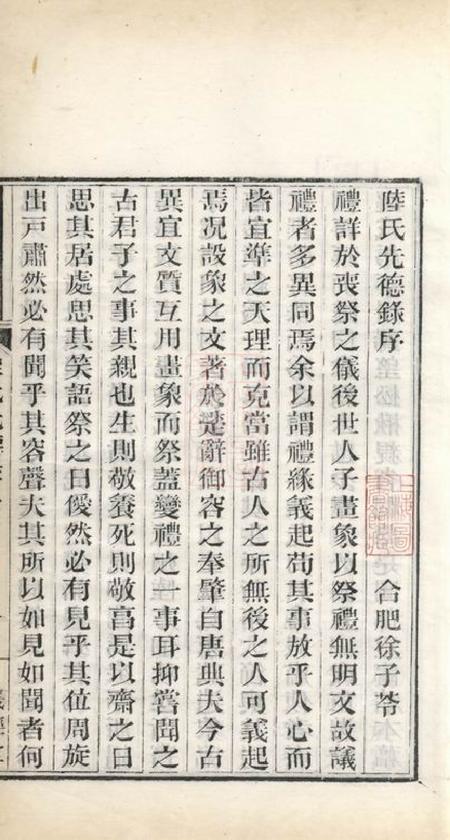 陸氏先德錄序
合肥徐子苓
禮詳於喪祭之儀後世人子畫象以祭禮無明文故議
禮者多異同焉余以謂禮緣義起苟其事放乎人心而
皆宜準之天理而克當雖古人之所無後之人可義起
焉况設象之文著於楚辭御容之奉肇自唐典夫今古
異宜文質互用畫象而祭蓋變禮之一事耳抑嘗聞之
古君子之事其親也生則敬養死則敬享是以齋之日
思其居處思其笑語祭之日僾然必有見乎其位周旋
出戸肅然必有聞乎其容聲夫其所以如見如聞者何
上海圖書館藏